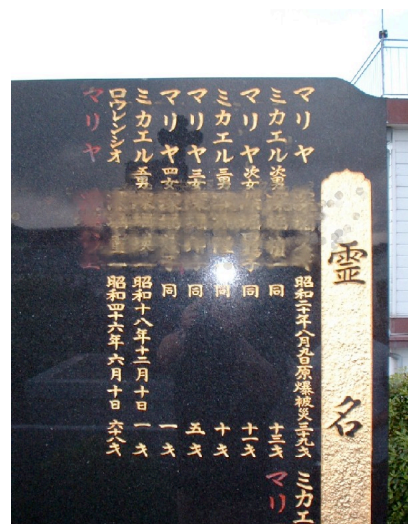 霊名
マリヤ 昭和二十年八月九日原爆被災 三九才
ミカエル 次男 同 十三才
マリヤ 次女 同 十一才
ミカエル 三男 同 十才
マリヤ 三女 同 五才
マリヤ 四女 同 一才
ミカエル 五男 昭和十八年十二月十日 一才
ロウレンシオ 昭和四十六年六月十日 六十八才
マリヤ
ミカエ
マリ